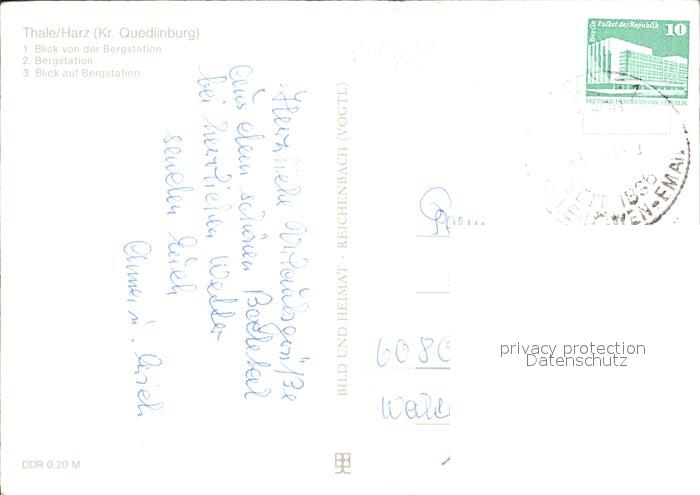 Thale/Harz (Kr. Quedlinburg)
1. Blick von der Bergstation
2. Bergstation
3. Blick auf Bergstation
Herzliche Urlaubsgrüße
aus dem schönen Bodetal
bei herrlichen Wetter
senden Euch
BILD UND HEIMAT · REICHENBACH (VOGTL)
Berlin Palast der Republik 10
DEUTSCHE DEMOKRATISCHE REPUBLIK
SEIT 1835
EN-EMAI
608
privacy protection
Datenschutz
DDR 0,20 M